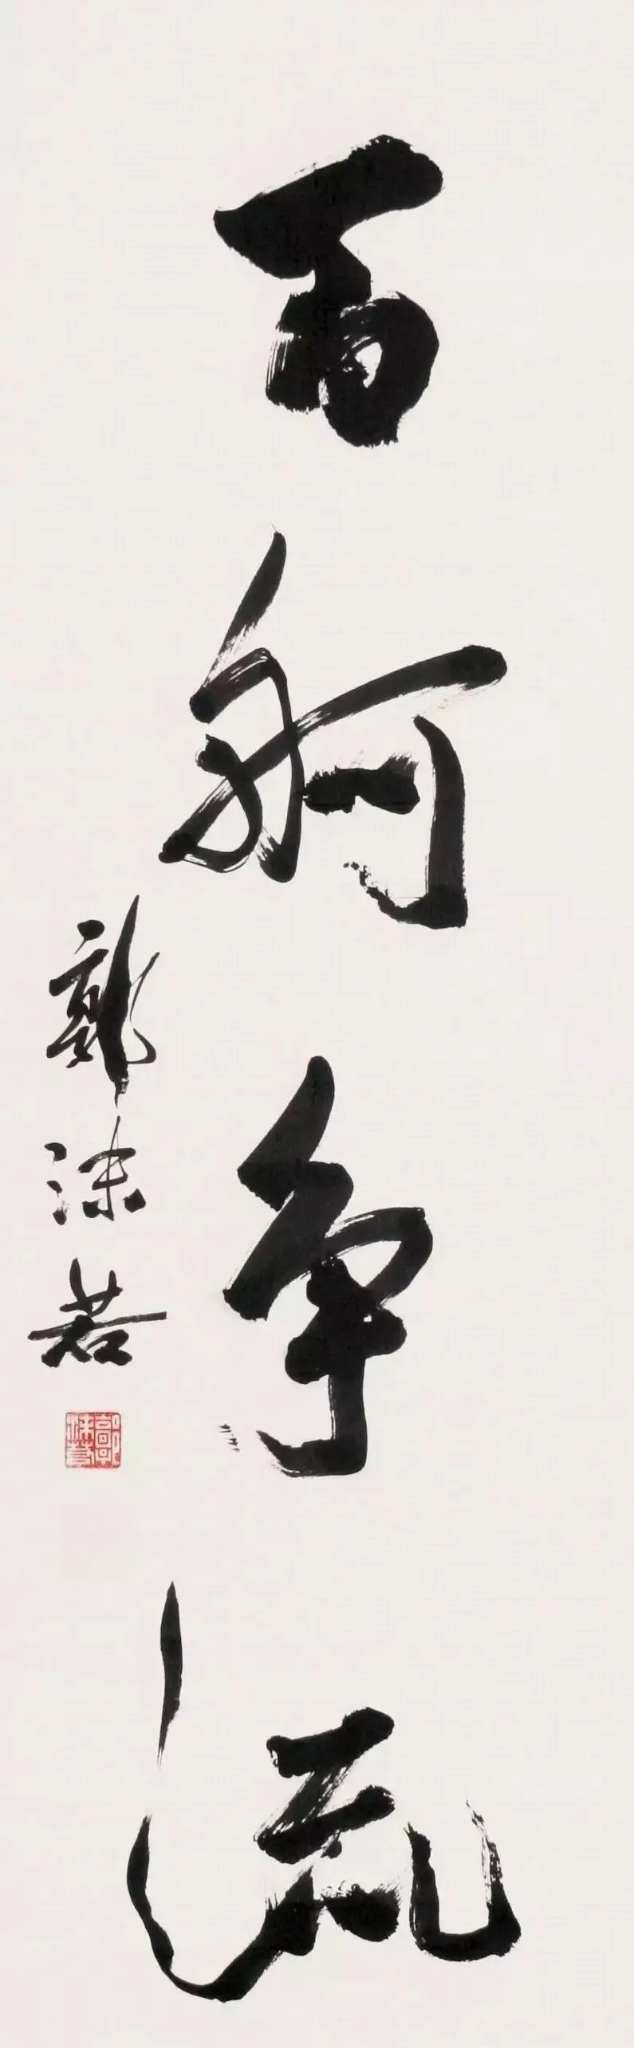 百舸争流
郭沫若
郭沫若